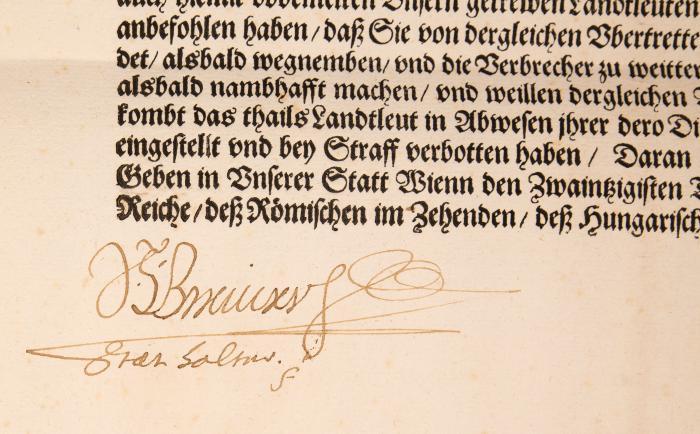 auch hiemit obbemelten Unsern getrewen Landtleuten
anbefohlen haben / daß Sie von dergleichen Vbertrette
det / alsbald wegnemben / vnd die Verbrecher zu weitter
alsbald nambhafft machen / vnd weillen dergleichen
kombt das thails Landtleut in Abwesen jhrer dero Di
eingestellt vnd bey Straff verbotten haben / Daran
Geben in Vnserer Statt Wienn den Zwaintzigisten
Reiche / deß Römischen im Zehenden / deß Hungarisch